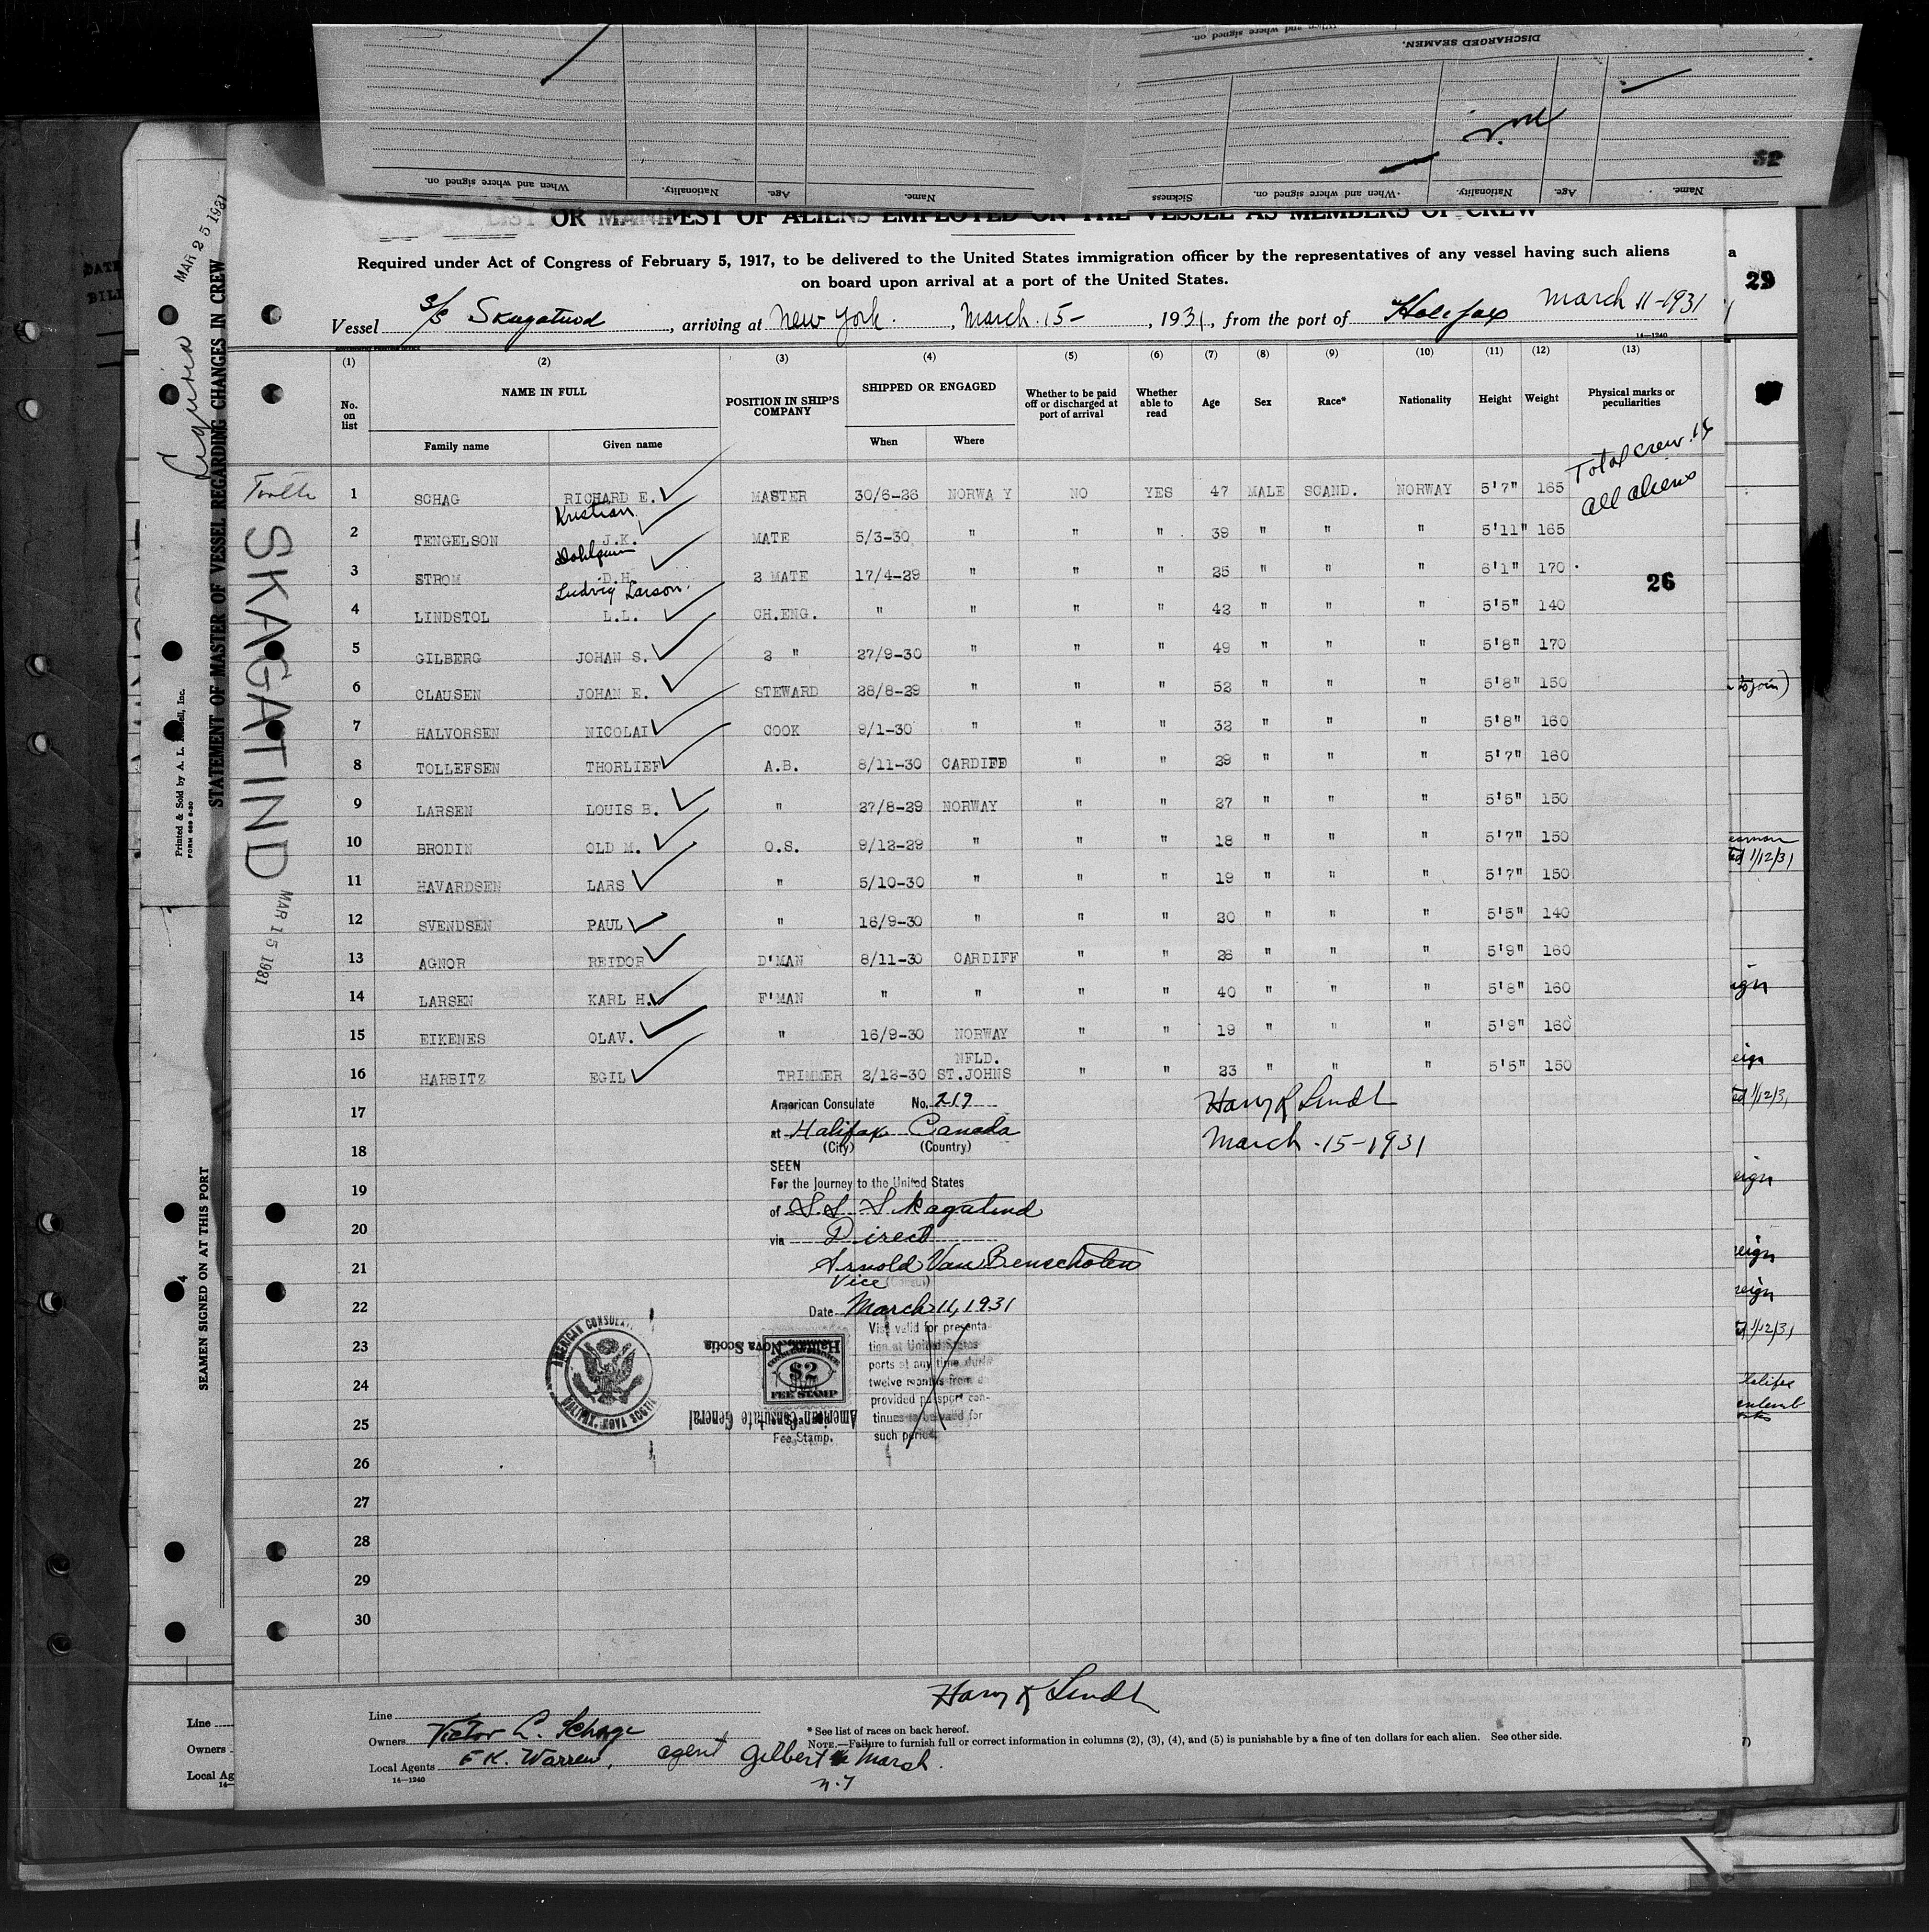 DISCHARGED SEAMEN.
When and where signed on.
Nationality.
Age.
Name.
Sickness
When and where signed on.
Nationality.
Age.
Name.
32
LIST OR MANIFEST OF ALIENS EMPLOYED ON THE VESSEL AS MEMBERS OF CREW
Required under Act of Congress of February 5, 1917, to be delivered to the United States immigration officer by the representatives of any vessel having such aliens
on board upon arrival at a port of the United States.
Vessel S/S Skagatind, arriving at New York, March 15-, 1931, from the port of Halifax March 11-1931
14-1240
29
(1) (2) (3) (4) (5) (6) (7) (8) (9) (10) (11) (12) (13)
No. on list
NAME IN FULL
Family name
Given name
POSITION IN SHIP'S COMPANY
SHIPPED OR ENGAGED
When
Where
Whether to be paid off or discharged at port of arrival
Whether able to read
Age
Sex
Race*
Nationality
Height
Weight
Physical marks or peculiarities
Total crew 16
All aliens
26
1 SCHAG RICHARD E. MASTER 30/6-26 NORWAY NO YES 47 MALE SCAND. NORWAY 5'7" 165
Kristian
2 TENGELSON J.K. MATE 5/3-30 " " " 39 " " " 5'11" 165
3 STROM D.H. 2 MATE 17/4-29 " " " 25 " " " 6'1" 170
Ludvig Larson
4 LINDSTOL L.L. CH.ENG. " " " " 42 " " " 5'5" 140
5 GILBERG JOHAN S. 2 " 27/9-30 " " " 49 " " " 5'8" 170
6 CLAUSEN JOHAN E. STEWARD 28/8-29 " " " 52 " " " 5'8" 150
7 HALVORSEN NICOLAI COOK 9/1-30 " " " 32 " " " 5'8" 160
8 TOLLEFSEN THORLIEF A.B. 8/11-30 CARDIFF " " 29 " " " 5'7" 160
9 LARSEN LOUIS B. " 27/8-29 NORWAY " " 27 " " " 5'5" 150
10 BRODIN OLD M. O.S. 9/12-29 " " " 18 " " " 5'7" 150
11 HAVARDSEN LARS " 5/10-30 " " " 19 " " " 5'7" 150
12 SVENDSEN PAUL " 16/9-30 " " " 20 " " " 5'5" 140
13 AGNOR REIDOR D'MAN 8/11-30 CARDIFF " " 26 " " " 5'9" 160
14 LARSEN KARL H. F'MAN " " " " 40 " " " 5'8" 160
15 EIKENES OLAV. " 16/9-30 NORWAY " " 19 " " " 5'9" 160
NFLD.
16 HARBITZ EGIL TRIMMER 2/12-30 ST.JOHNS " " 23 " " " 5'5" 150
17
18
19
20
21
22
23
24
25
26
27
28
29
30
American Consulate No. 219
at Halifax Canada
(City) (Country)
SEEN
For the Journey to the United States
of S.S. Skagatind
via Direct
Arnold Van Benschoten
Vice (Consul)
Date March 11, 1931
Harry K Lindt
March-15-1931
Visa valid for presenta-
tion at United States
ports at any time during
twelve months from d
provided passport con-
tinues to be valid for
such period
AMERICAN CONSULATE
HALIFAX, NOVA SCOTIA
Halifax, Nova Scotia
$2
FEE STAMP
American Consulate General
Fee Stamp.
Harry K Lindt
Line
Owners Victor L. Schage
Local Agents F K. Warren, agent Gilbert & Marsh.
N.Y
14-1240
* See list of races on back hereof.
NOTE.—Failure to furnish full or correct information in columns (2), (3), (4), and (5) is punishable by a fine of ten dollars for each alien. See other side.
SKAGATIND
MAR 15 1931
MAR 25 1931
STATEMENT OF MASTER OF VESSEL REGARDING CHANGES IN CREW
SEAMEN SIGNED ON AT THIS PORT
4
Printed & Sold by A. L.
Line
Owners
Local Ag
to join)
1/12/31
eign
1/12/31
eign
reign
reign
1/12/31